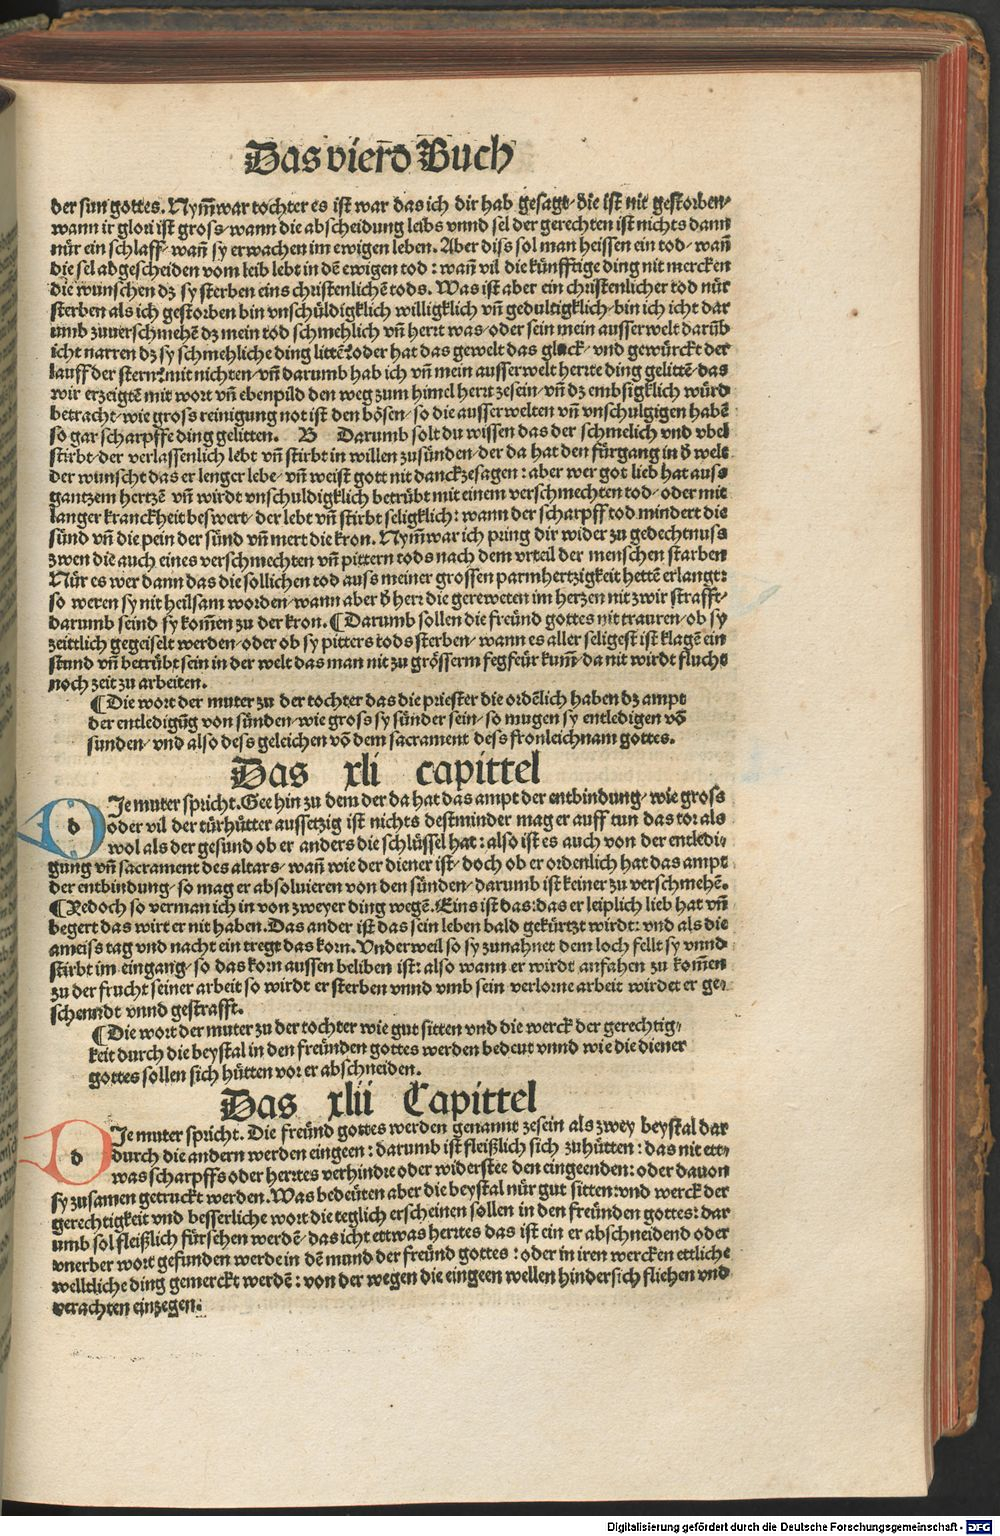 Das vierd Buch
der sun gottes. Nym̄war tochter es ist war das ich dir hab gesagt/ die ist nit gestorben/
wann ir glori ist gross/ wann die abscheidung leibs vnnd sel der gerechten ist nichts dann
nur ein schlaff/ wañ sy erwachen im ewigen leben. Aber diss sol man heissen ein tod/ wañ
die sel abgescheiden vom leib lebt in dē ewigen tod: wañ vil die künfftige ding nit mercken
die wunschen dz sy sterben eins christenlichē tods. Was ist aber ein christenlicher tod nür
sterben als ich gestorben bin vnschuldigklich willigklich vñ gedultigklich/ bin ich icht dar
umb zuuerschmehē dz mein tod schmehlich vñ hertt was/ oder sein mein ausserwelt darūb
icht narren dz sy schmehliche ding littē? oder hat das gewelt das gluck/ vnd gewürckt der
lauff der stern? mit nichten/ vñ darumb hab ich vñ mein ausserwelt hertte ding gelittē/ das
wir erzeigtē mit wort vñ ebenpild den weg zum himel hertt zesein/ vñ dz embsigklich würd
betracht/ wie gross reinigung not ist den bösen/ so die ausserwelten vñ vnschulgigen habē
so gar scharpffe ding gelitten. B Darumb solt du wissen das der schmelich vnd vbel
stirbt/ der verlassenlich lebt vñ stirbt in willen zusünden/ der da hat den fürgang in d̄ welt
der wunscht das er lenger lebe/ vñ weist gott nit danckzesagen: aber wer got lieb hat auss
gantzem hertzē vñ wirdt vnschuldigklich betrübt mit einem verschmechten tod/ oder mit
langer kranckheit beswert/ der lebt vñ stirbt seligklich: wann der scharpff tod mindert die
sünd vñ die pein der sünd vñ mert die kron. Nym̄war ich pring dir wider zu gedechtnuss
zwen die auch eines verschmechten vñ pittern tods nach dem vrteil der menschen starben
Nür es wer dann das die sollichen tod auss meiner grossen parmhertzigkeit hettē erlangt:
so weren sy nit heilsam worden/ wann aber d̄ herr die gereweten im herzen nit zwir strafft/
darumb seind sy kom̄en zu der kron. ¶ Darumb sollen die freünd gottes nit trauren/ ob sy
zeittlich gegeiselt werden/ oder ob sy pitters tods sterben/ wann es aller seligest ist klagē ein
stund vñ betrübt sein in der welt das man nit zu grösserm fegfeür kum̄/ da nit wirdt flucht
noch zeit zu arbeiten.
¶ Die wort der muter zu der tochter das die priester die ordēlich haben dz ampt
der entledigūg von sünden/ wie gross sy sünder sein/ so mugen sy entledigen vō
sunden/ vnd also dess geleichen vō dem sacrament dess fronleichnam gottes.
Das xli capittel
d
Ie muter spricht. Gee hin zu dem der da hat das ampt der entbindung/ wie gross
oder vil der türhütter aussetzig ist nichts destminder mag er auff tun das tor als
wol als der gesund ob er anders die schlüssel hat: also ist es auch von der entledi/
gung vñ sacrament des altars/ wañ wie der diener ist/ doch ob er ordenlich hat das ampt
der entbindung/ so mag er absoluieren von den sünden/ darumb ist keiner zu verschmehē.
¶ Yedoch so verman ich in von zweyer ding wegē. Eins ist das: das er leiplich lieb hat vñ
begert das wirt er nit haben. Das ander ist das sein leben bald gekürtzt wirdt: vnd als die
ameiss tag vnd nacht ein tregt das korn. Vnderweil so sy zunahnet dem loch fellt sy vnnd
stirbt im eingang/ so das korn aussen beliben ist: also wann er wirdt anfahen zu kom̄en
zu der frucht seiner arbeit so wirdt er sterben vnnd vmb sein verlorne arbeit wirdet er ge/
schenndt vnnd gestrafft.
¶ Die wort der muter zu der tochter wie gut sitten vnd die werck der gerechtig/
keit durch die beystal in den freünden gottes werden bedeut vnnd wie die diener
gottes sollen sich hütten vor er abschneiden.
Das xlii Capittel
d
Ie muter spricht. Die freünd gottes werden genannt zesein als zwey beystal dar
durch die andern werden eingeen: darumb ist fleißlich sich zuhütten: das nit ett/
was scharpffs oder herttes verhindre oder widerstee den eingeenden: oder dauon
sy zusamen getruckt werden. Was bedeüten aber die beystal nür gut sitten: vnd werck der
gerechtigkeit vnd besserliche wort die teglich erscheinen sollen in den freünden gottes: dar
umb sol fleißlich fürsehen werdē/ das icht ettwas herttes das ist ein er abschneidend oder
vnerber wort gefunden werde in dē mund der freünd gottes: oder in iren wercken ettliche
welltliche ding gemerckt werdē: von der wegen die eingeen wellen hindersich fliehen vnd
verachten einzegen.
Digitalisierung gefördert durch die Deutsche Forschungsgemeinschaft - DFG